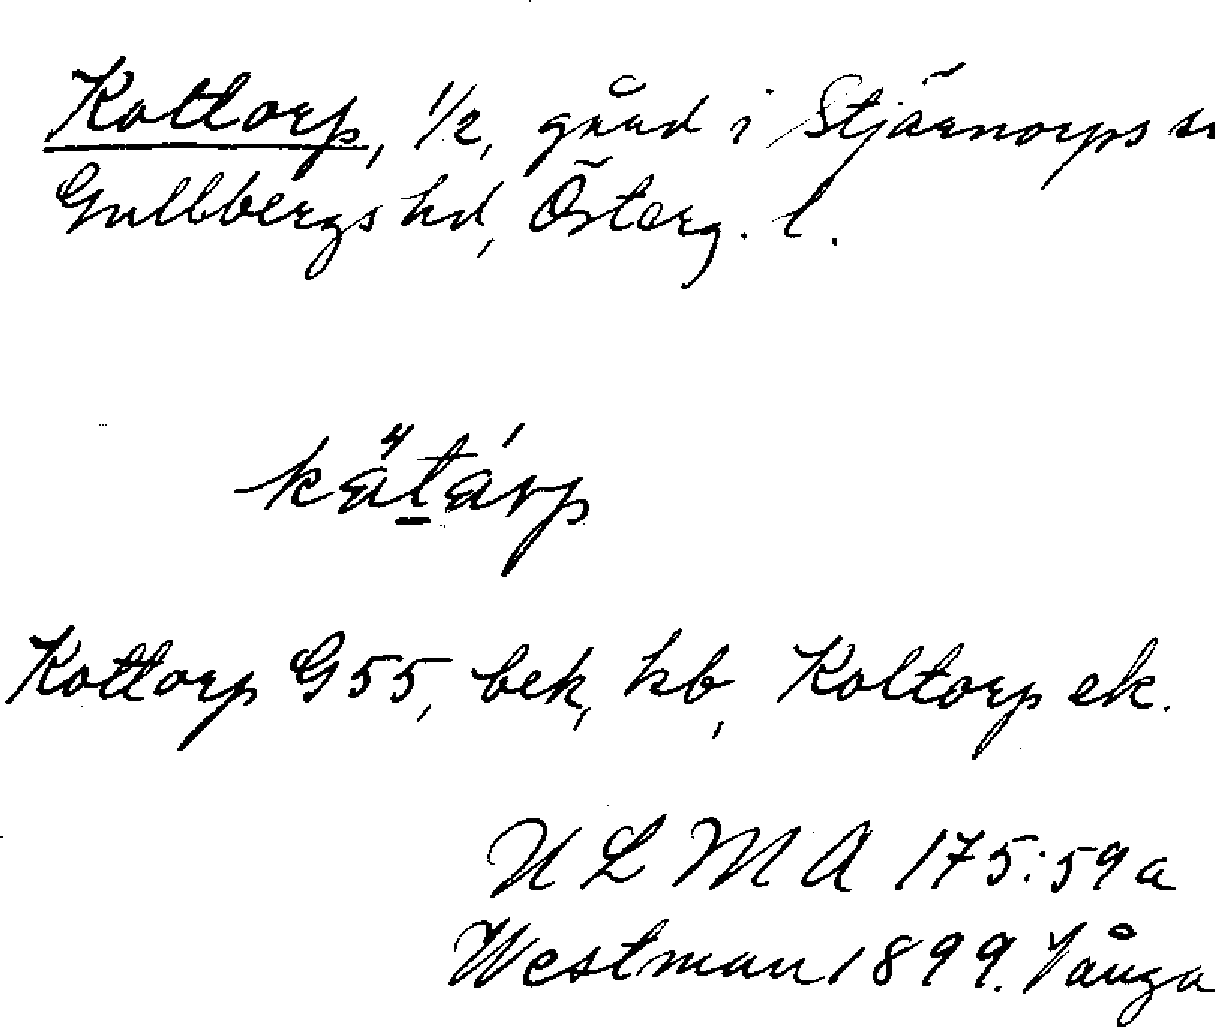 Kottorp, 1/2, gård i Stjärnorps sn
Gullbergs hd, Österg. l.
Kottorp G55, bek, kb, Koltorp ek.
ULMA 175:59a
Westman 1899. Vånga